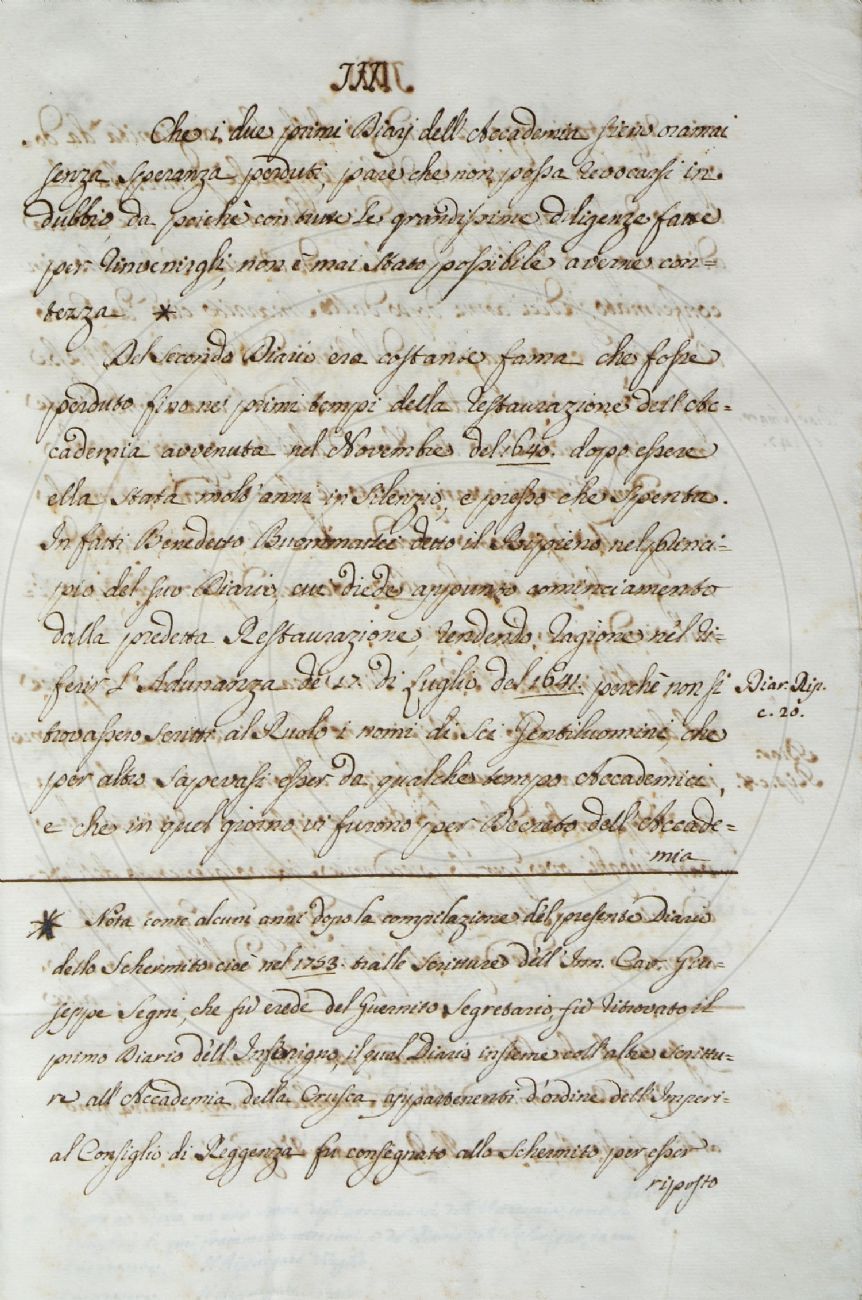 Che i due primi Diarj dell'Accademia sieno oramai
senza speranza perduti, pare che non possa revocarsi in
dubbio, da poichè con tutte le grandissime diligenze fatte
per rinvenirgli, non è mai stato possibile averne con=
tezza *
Del secondo Diario era costante fama che fosse
perduto fino ne' primi tempi della restaurazione dell'Ac=
cademia avvenuta nel Novembre del 1640. dopo essere
ella stata molt'anni in silenzio, e presso che spenta.
In fatti Benedetto Buommattei detto il Ripieno nel princi=
pio del suo Diario, cui diede appunto cominciamento
dalla predetta Restaurazione, rendendo ragione nel ri=
ferir l'Adunanza de' 17. di Luglio del 1641. perchè non si
Diar. Rip.
c. 20.
trovassero scritti al Ruolo i nomi di sei Gentiluomini, che
per altro sapevasi esser da qualche tempo Accademici,
e che in quel giorno vi furono per Decreto dell'Accade=
mia
* Nota come alcuni anni dopo la compilazione del presente Diario
dello Schermito cioè nel 1753. tralle scritture dell'Inn. Cav. Giu=
seppe Segni, che fù erede del Guernito Segretario, fù ritrovato il
primo Diario dell'Inferigno, il qual Diario insieme coll'altre scrittu=
re all'Accademia della Crusca appartenenti d'ordine dell'Imperi=
al Consiglio di Reggenza fu consegnato allo Schermito per esser
riposto